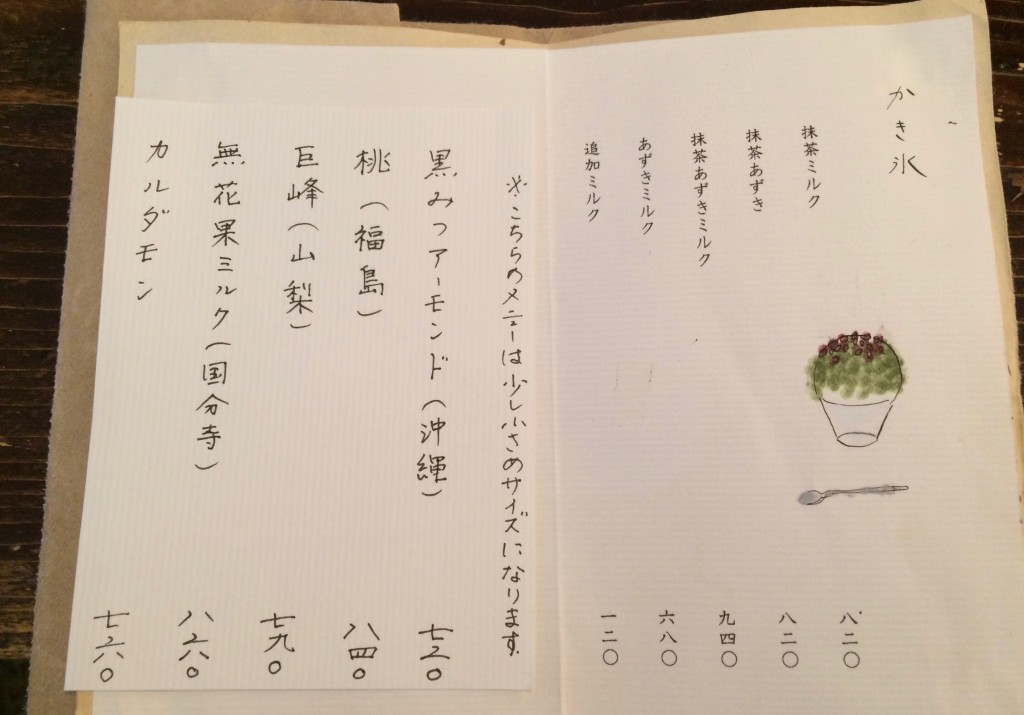 かき氷
抹茶ミルク 八二〇
抹茶あずき 八二〇
抹茶あずきミルク 九四〇
あずきミルク 六八〇
追加ミルク 一二〇
※こちらのメニューは少し小さめサイズになります。
黒みつアーモンド(沖縄) 七三〇
桃(福島) 八四〇
巨峰(山梨) 七九〇
無花果ミルク(国分寺) 八六〇
カルダモン 七六〇